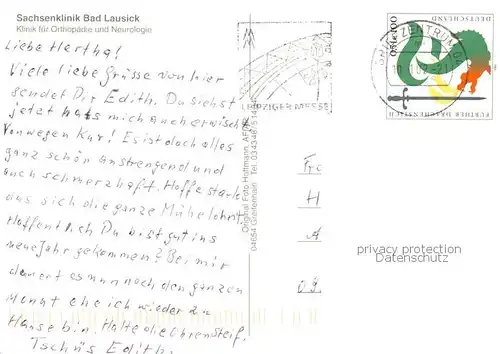 Sachsenklinik Bad Lausick
Klinik für Orthopädie und Neurologie
Liebe Hertha!
Viele liebe Grüsse von hier
sendet Dir Edith. Du siehst
jetzt hat's mich auch erwischt
Von wegen Kur! Es ist doch alles
ganz schön anstrengend und
auch schmerzhaft. Hoffe stark
das sich die ganze Mühe lohnt.
Hoffentlich Du bist gut ins
neue Jahr gekommen? Bei mir
dauert es nun noch den ganzen
Monat ehe ich wieder zu
Hause bin. Halte die Ohren steif.
Tschüs Edith.
LEIPZIGER MESSE
BRIEFZENTRUM 04
DEUTSCHLAND
100
FURTHER DRACHENSTICH
Original Foto Huttmann, AFDP
04654 Greifenhain Tel. 034348/51484
Fr
H
A
09
privacy protection
Datenschutz